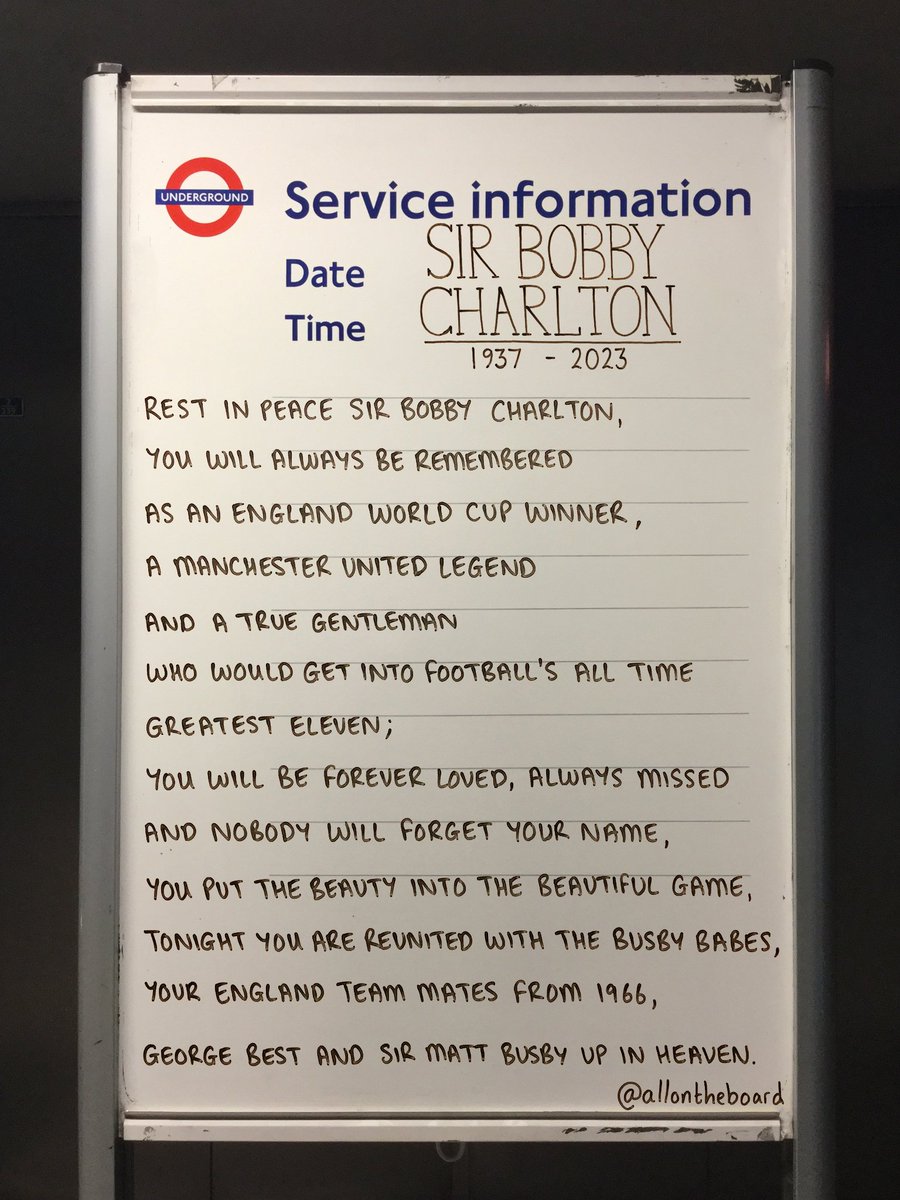 UNDERGROUND
Service information
Date
Time
SIR BOBBY
CHARLTON
1937 - 2023
REST IN PEACE SIR BOBBY CHARLTON,
YOU WILL ALWAYS BE REMEMBERED
AS AN ENGLAND WORLD CUP WINNER,
A MANCHESTER UNITED LEGEND
AND A TRUE GENTLEMAN
WHO WOULD GET INTO FOOTBALL'S ALL TIME
GREATEST ELEVEN;
YOU WILL BE FOREVER LOVED, ALWAYS MISSED
AND NOBODY WILL FORGET YOUR NAME,
YOU PUT THE BEAUTY INTO THE BEAUTIFUL GAME,
TONIGHT YOU ARE REUNITED WITH THE BUSBY BABES,
YOUR ENGLAND TEAM MATES FROM 1966,
GEORGE BEST AND SIR MATT BUSBY UP IN HEAVEN.
@allontheboard